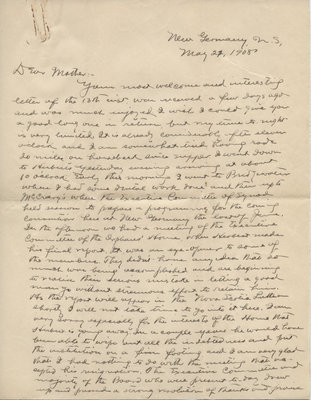 New Germany N.S,
May 27, 1908
Dear Mother:-
Your most welcome and interesting
letter of the 13th inst. was received a few days ago
and was much enjoyed. I wish I could give you
a good long one in return but my time to-night
is very limited. It is already considerably after eleven
o'clock and I am somewhat tired having rode
20 miles on horseback since supper. I went down
to yesterday evening arriving at about
10 o'clock. Early this morning I went to Bridgewater
where I had some dental work done and then up to
McCraig's where the Executive Committee of Synod
held session to prepare a programme for the coming
convention here at New Germany the last of June.
In the afternoon we had a meeting of the Executive
Committee of the Orphans' Home, when made
his final report. It was an eye-opener to some of
the members. They didn't have any idea that so
much was being accomplished and are beginning
to realize their serious mistake in letting a good
man go without strenuous effort to retain him.
As the report will appear in the Nova Scotia Lutheran
shortly I will not take time to go into it here. I am
very sorry especially for the interests of the Home that
is going away. In a couple years he would have
been able to wipe out all the indebtedness and put
the institution on a firm footing and I am very glad
that I had nothing to do with the meeting that ac-
cepted his resignation. The Executive Committee and
majority of the Board who were present to-day drew
up and passed a strong resolution of thanks and praise